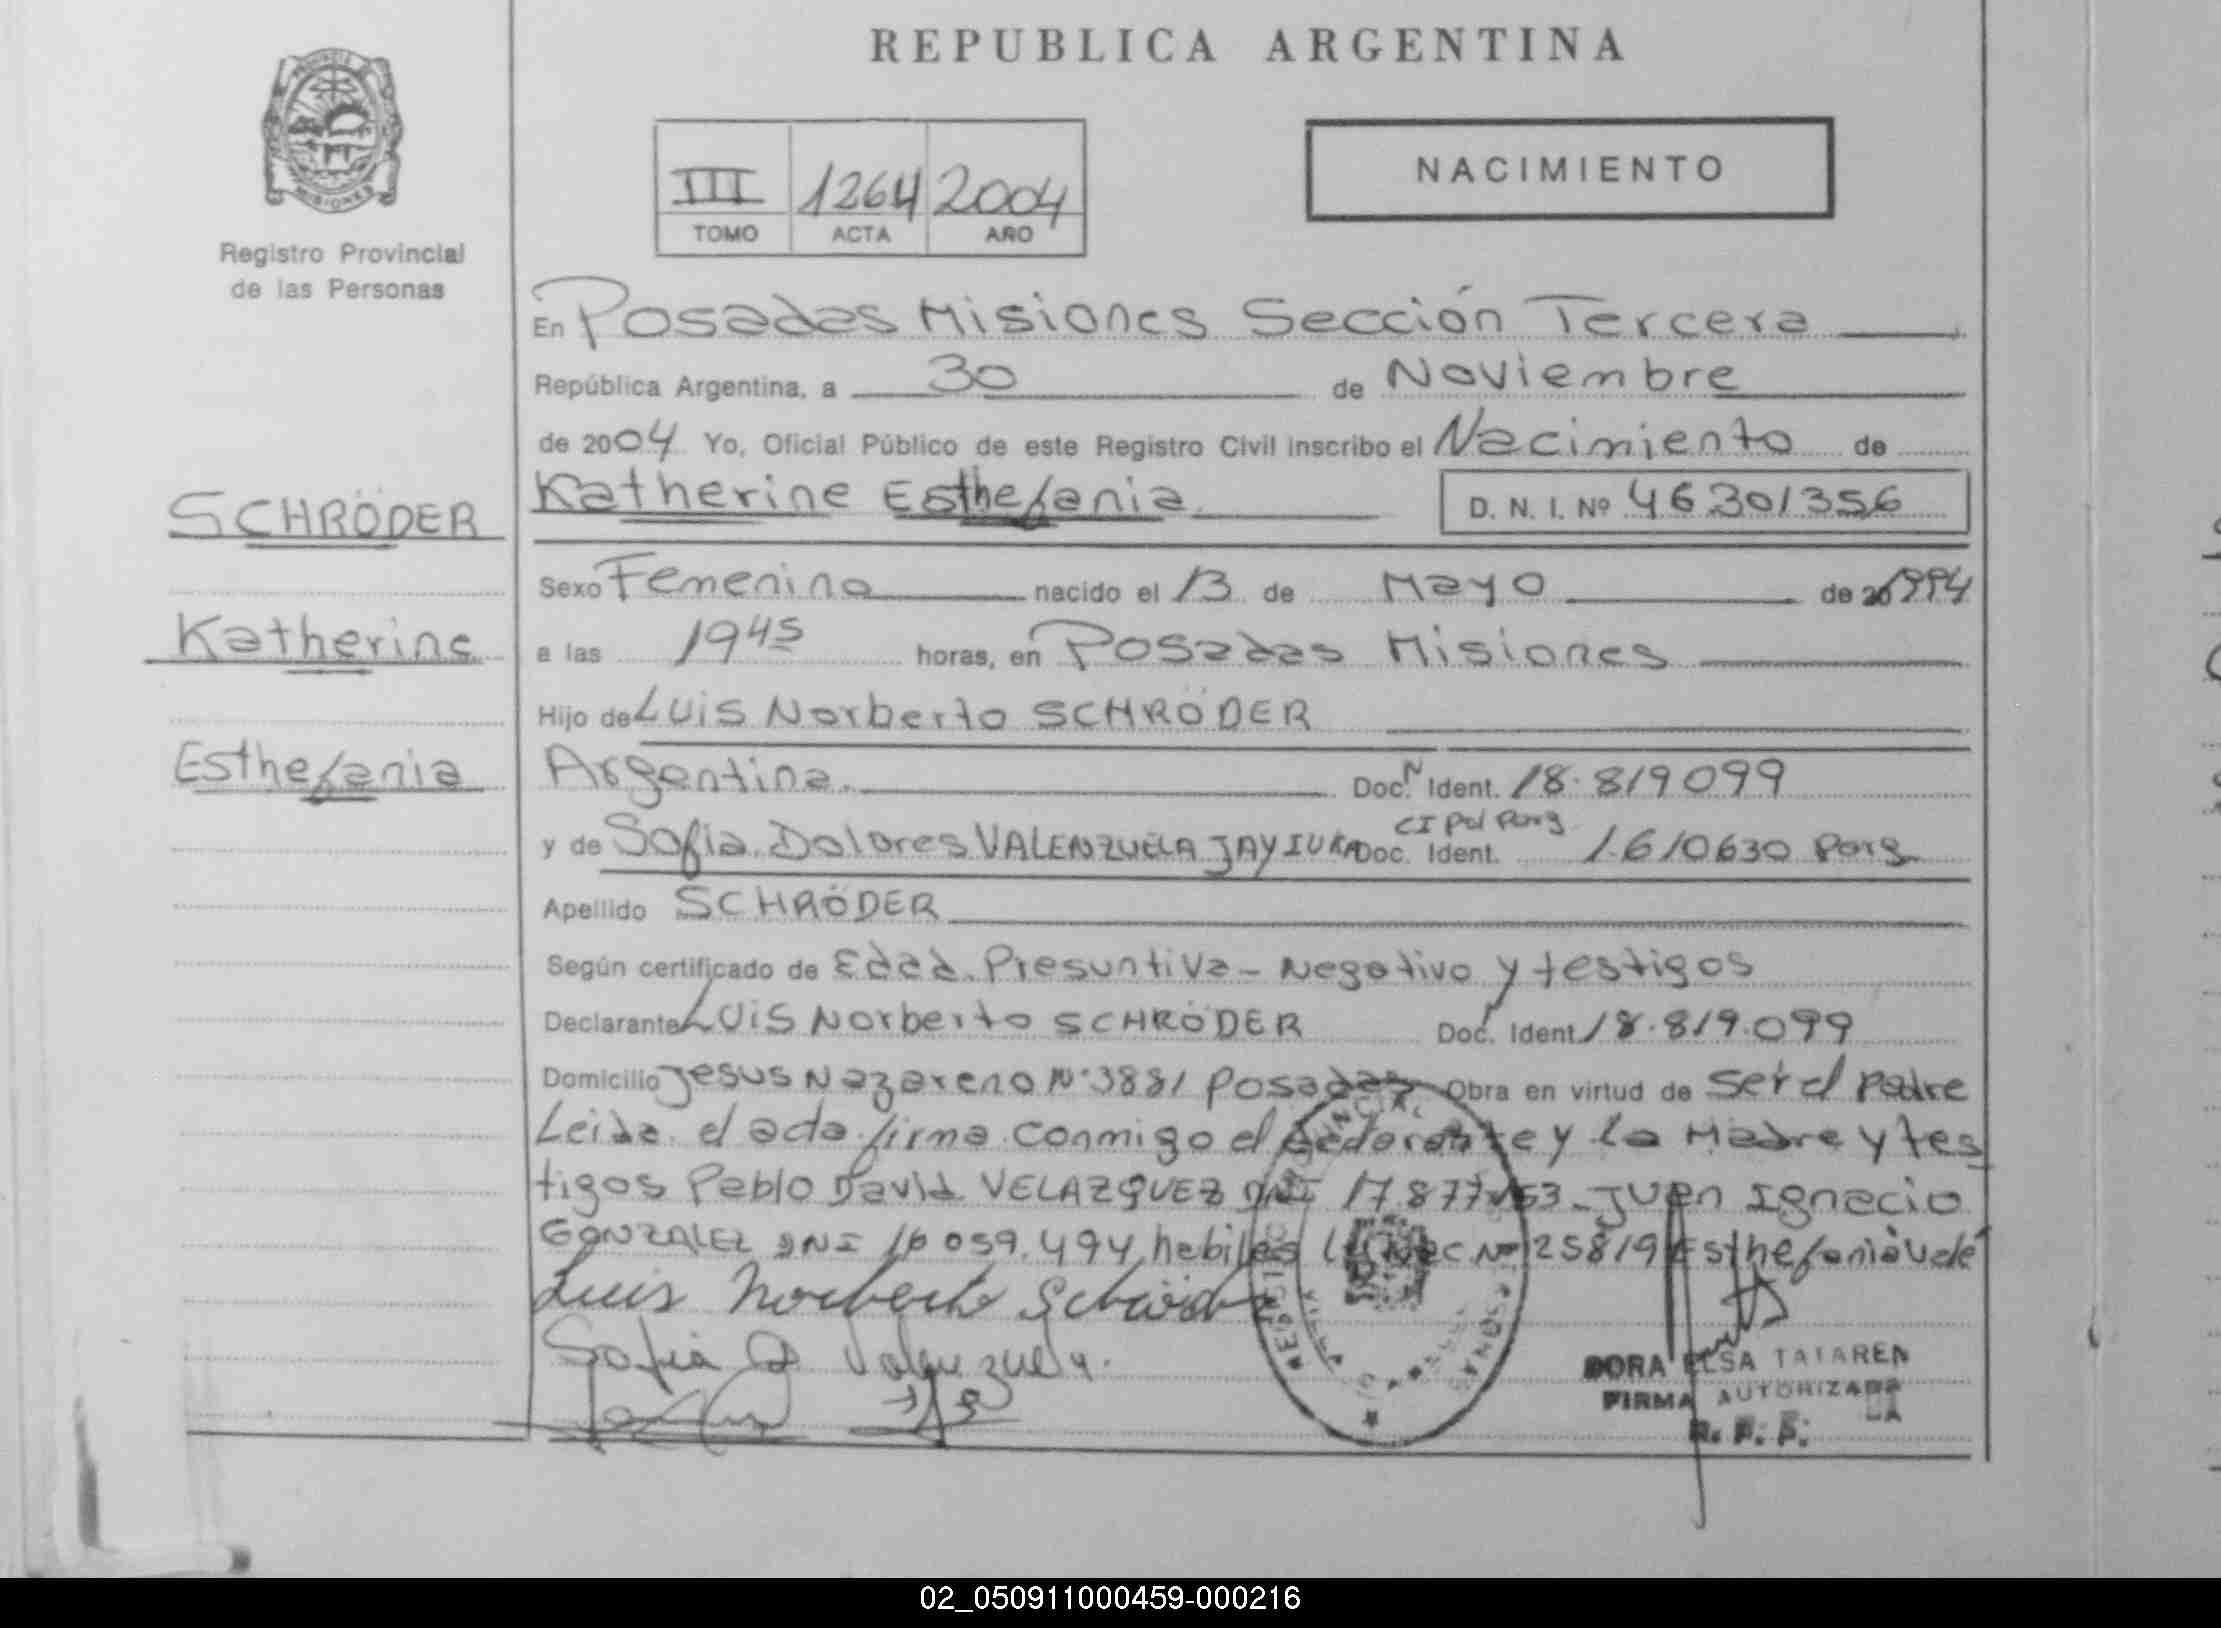 REPUBLICA ARGENTINA
III 1264 2004
TOMO ACTA AÑO
NACIMIENTO
Registro Provincial
de las Personas
En Posadas Misiones Sección Tercera
República Argentina, a 30 de Noviembre
de 2004 Yo, Oficial Público de este Registro Civil inscribo el Nacimiento de
SCHRÖDER
Katherine
Esthefania
Katherine Esthefania D. N. I. Nº 46301356
Sexo Femenino nacido el 13 de Mayo de 1994
a las 19 45 horas, en Posadas Misiones
Hijo de Luis Norberto SCHRÖDER
Argentina. Doc. N Ident. 18.819099
y de Sofia Dolores VALENZUELA Doc. Ident. CI Pol Parg 1.610630 Parg
Apellido SCHRÖDER
Según certificado de Edad Presuntiva - Negativo y testigos
Declarante Luis Norberto SCHRÖDER Doc. Ident. 18.819.099
Domicilio Jesus Nazareno Nº 3881 Posadas Obra en virtud de ser el Padre
Leida el acta firma conmigo el y la Madre y tes
tigos Pablo David VELAZQUEZ DNI Juan Ignacio
GONZALEZ DNI 16 059.494 habiles 25819 Esthefania vale
Luis Norberto Schröder
Sofia D Valenzuela.
DORA ELSA TATAREN
FIRMA AUTORIZADA
R. P. P.
02_050911000459-000216